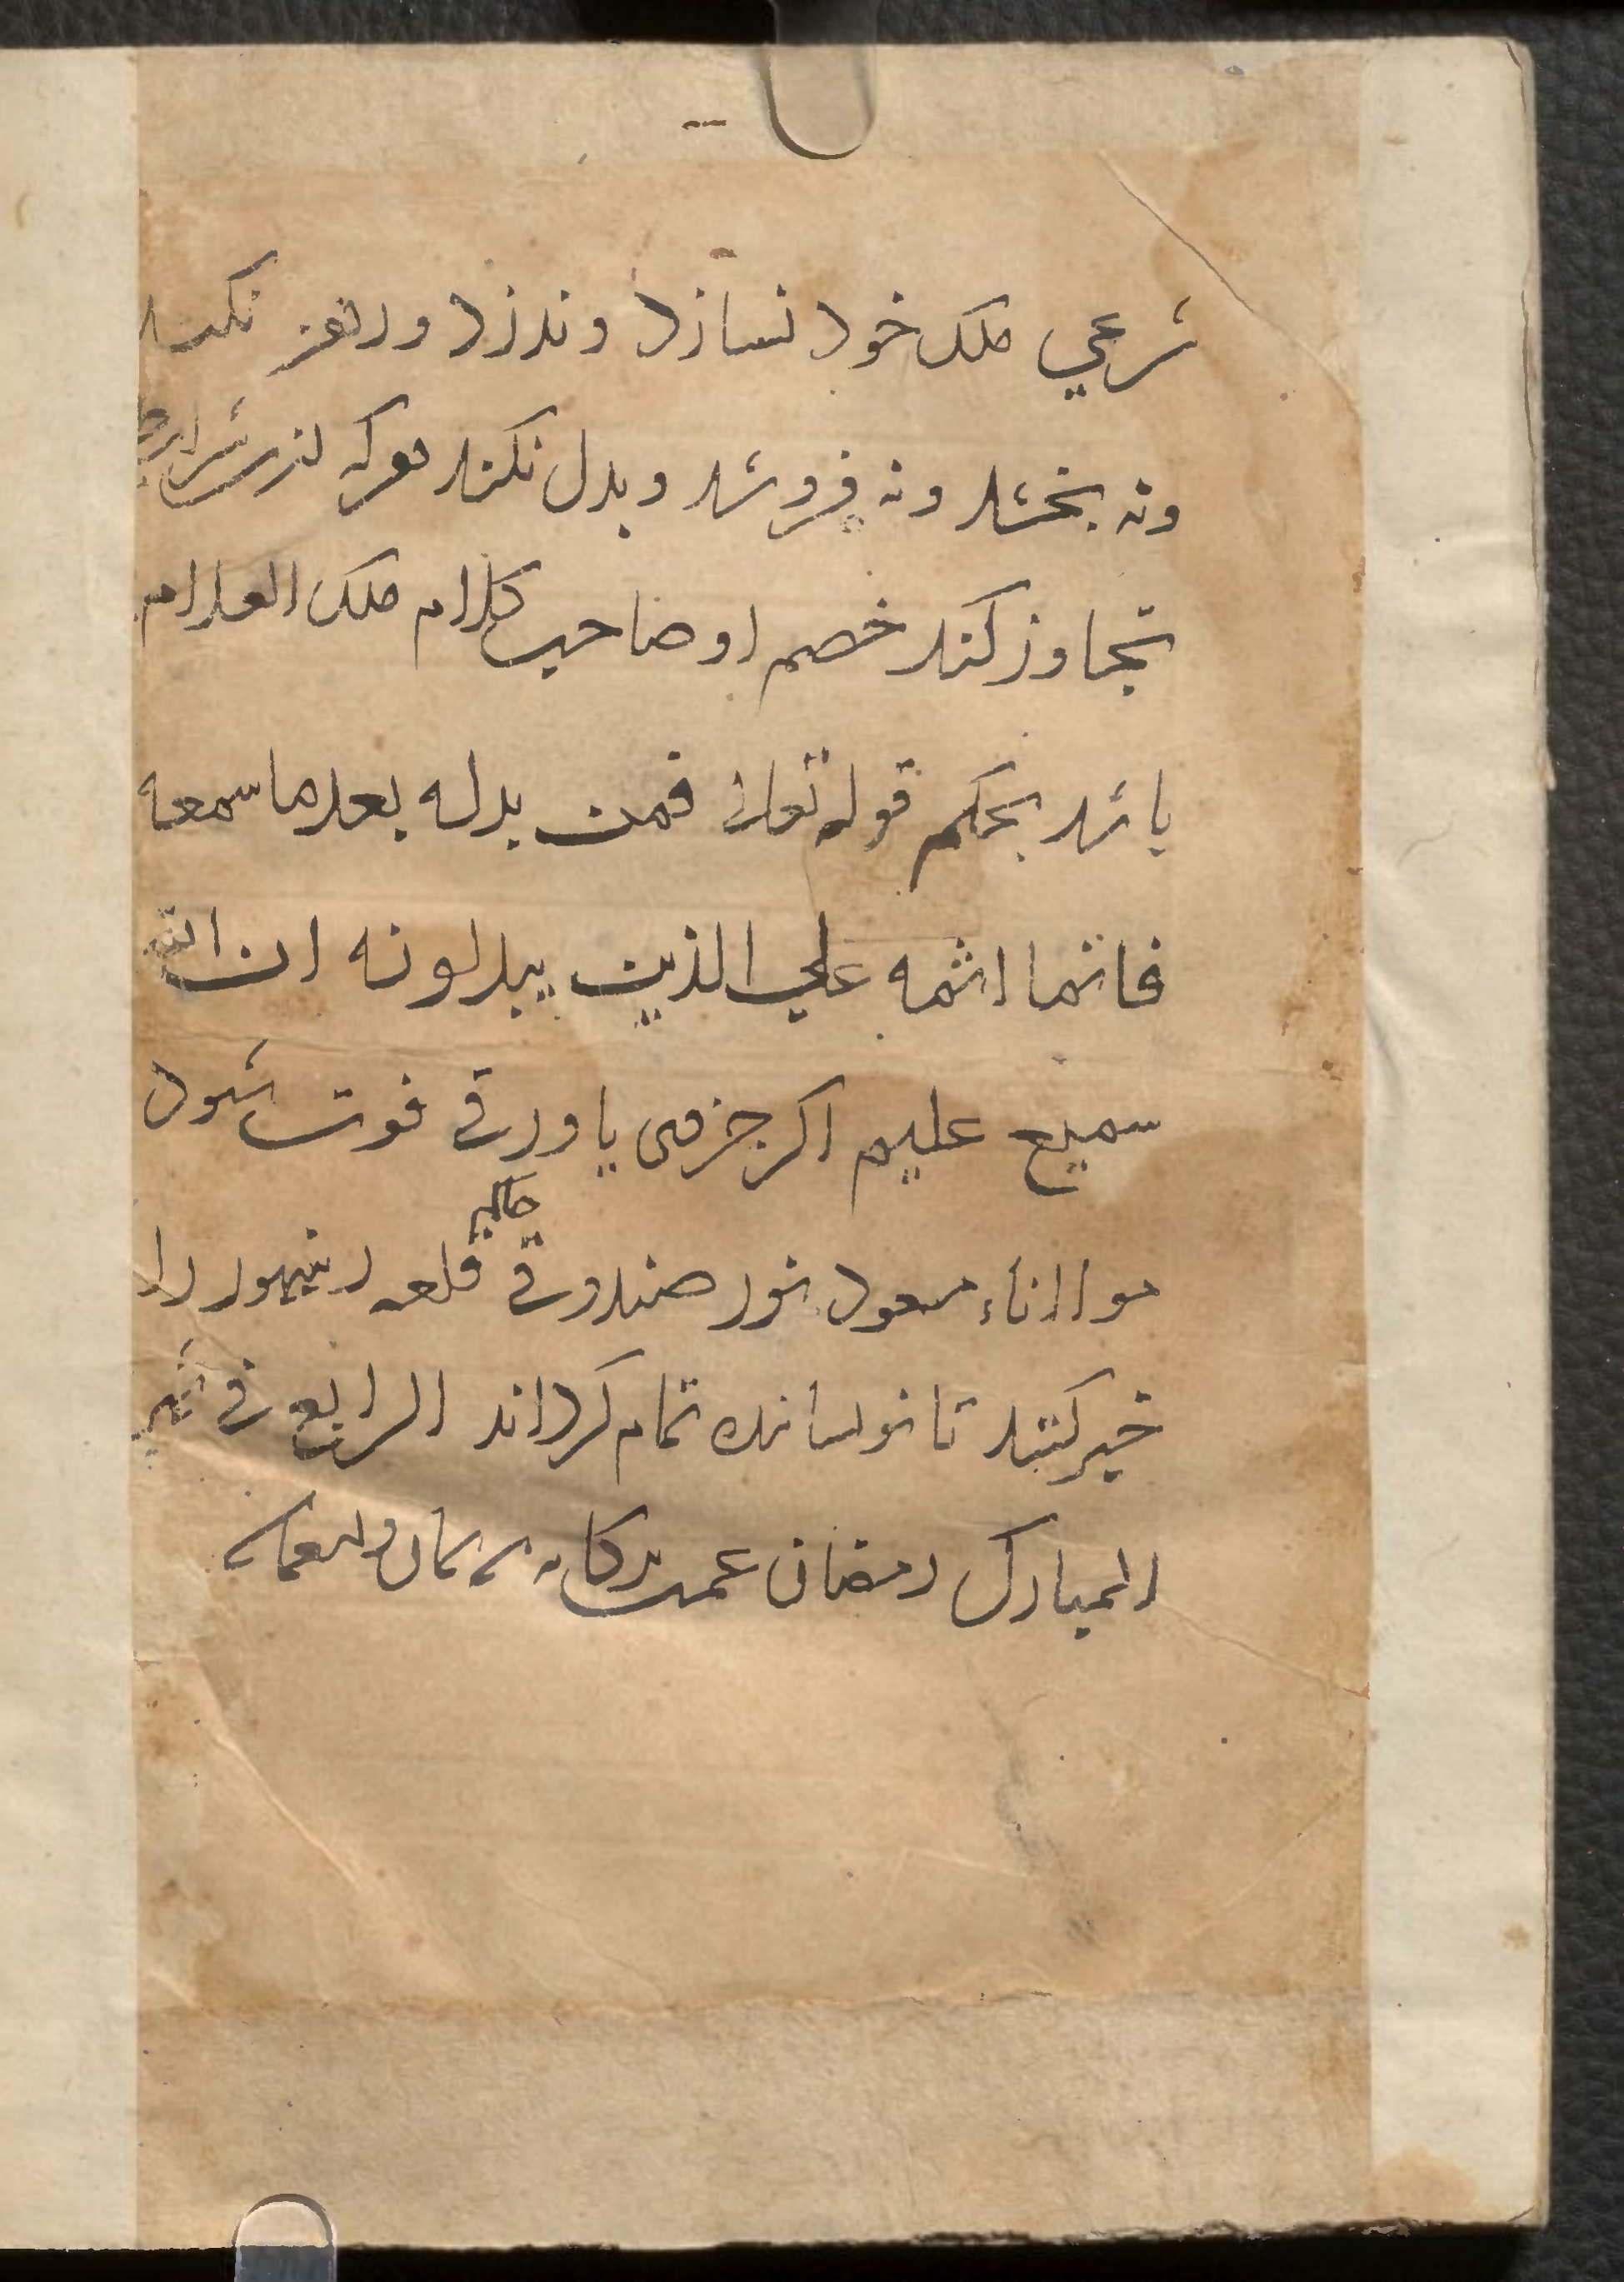 شرعي ملك خود نسازد و ندزد و رهن نكند
ونه بخشد ونه فروشد و بدل نكند هركه ازين شرايط
تجاوز كند خصم او صاحب كلام ملك العلام
باشد بحكم قوله تعالى فمن بدله بعد ما سمعه
فانما اثمه علي الذين يبدلونه ان الله
سميع عليم اكر جزمى يا ورقى فوت شود
مولانا مسعود نور صندوقى قلعه رنتهور را
خبر كنند تا نويسانده تمام كرداند الرابع فى شهر
المبارك رمضان عمت بركاته